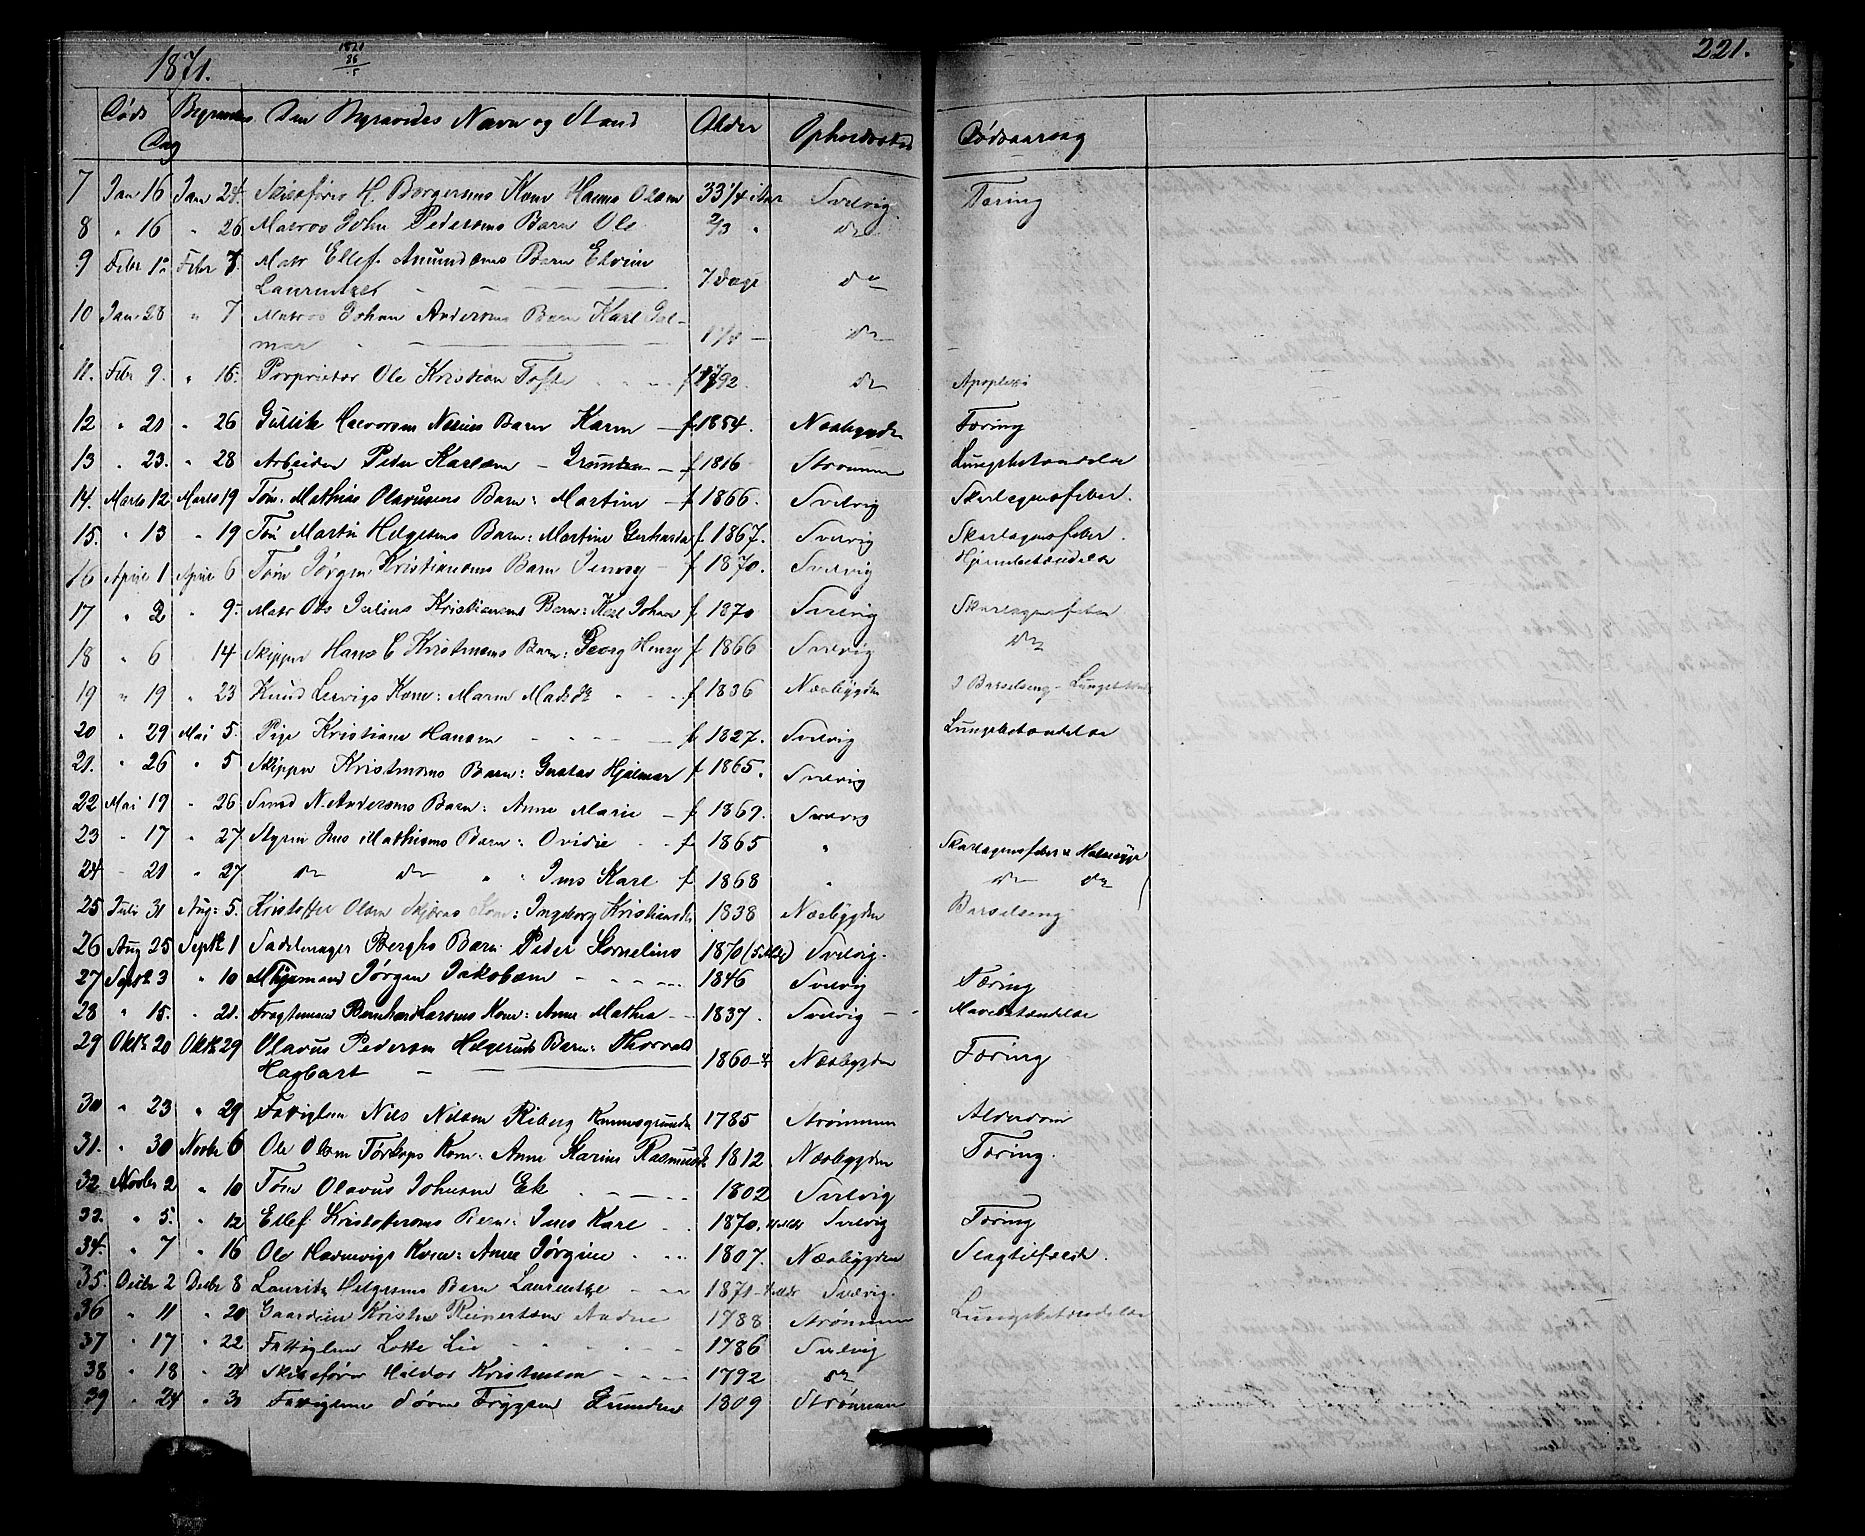 1871.
221.
Døds Begravelses Den Begravedes Navn og Stand Alder Opholdssted Dødsaarsag
Dag
7 Jan 16 Jan 24. Skibsfører H. Borgersens Kone Hanna Olsen 33 1/4 Aar Svelvig. Tæring
8 " 16 " 26 Matros John Pedersens Barn Ole 2/3 " do
9 Febr 1 Febr 7. Matr Ellef Amundsens Barn Edvin
Laurentzes 7 dage do
10 Jan 28 " 7 Matros Johan Andersens Barn Karl Hel-
mar 1 1/4 do
11. Febr 9. " 16. Proprietær Ole Kristian Tofte f 1792. do Apoplexi
12 " 21 " 26 Gullik Halvorsen Nesset Barn Karen f 1854. Næsbygden Tæring
13 " 23. " 28 Arbeider Peder Karlsen Grunden f 1816 Strømmen Lungebetændelse
14. Marts 12 Marts 19 Tøm. Mathias Olavesens Barn: Martine f 1866. Svelvig Skarlagensfeber.
15. " 13 " 19 Tøm Martin Helgesens Barn: Martine Gerharda f. 1867. Svelvig Skarlagensfeber.
16 April 1 April 6 Tøm Jørgen Kristiansens Barn Jenny f 1870. Svelvig Hjernebetændelse
17 " 2 " 9. Matr Ole Julius Kristiansens Barn: Karl Johan f 1870 Svelvig Skarlagensfeber
18 " 6 14 Skipper Hans C Kristensens Barn: Georg Henry f 1866 Svelvig do
19 " 19 " 23 Knud Lervigs Kone: Maren Madsdr f 1836 Næsbygden I Barselseng - Lungebet
20 " 29 Mai 5. Pige Kristiane Hansen f 1827. Svelvig Lungebetændelse
21. " 26 " 5 Skipper Kristensens Barn: Gustav Hjalmar f 1865. Svelvig
22 Mai 19 " 26 Smed N. Andersens Barn: Anne Marie f 1869. Svelvig
23 " 17 " 27 Styrm Jens Mathisens Barn: Ovidie f 1865 " Skarlagensfeber & Halssyge
24 " 21 " 27 do do " " Jens Karl f 1868 " do do
25 Juli 31 Aug: 5. Kristoffer Olsen Kone: Ingeborg Kristiansdr 1838 Næsbygden Barselseng
26 Aug 25 Septb 1 Sadelmager Berghs Barn Peder Kornelius 1870 (5 Mdr) Svelvig.
27 Septb 3 " 10 Jørgen Jakobsen 1846 Svelvig Tæring
28 " 15. " 21. Fragtemand Bernhard Larsens Kone: Anne Mathea 1837. Svelvig Mavebetændelse
29 Oktb 20 Oktb 29 Olavus Pedersen Helgeruds Barn: Thorvald
Hagbart 1860 Næsbygden Tæring
30 " 23 " 29 Fattiglem Nils Nilsen Riberg 1785 Strømmen Alderdom
31. " 30 Novbr 6 Ole Olsen Tørkops Kone: Anne Karine Rasmusdr 1812. Næsbygden Tæring.
32 Novbr 2 " 10 Tøm Olavus Johnsen Ek 1802 Svelvig
33. " 5. " 12 Ellef Kristoffersens Barn: Jens Karl 1870. Svelvig Tæring
34. " 7 " 16 Ole Havnevigs Kone: Anne Jørgine 1807. Næsbygden Slagtilfælde.
35. Decbr 2 Decbr 8 Lauritz Helgesens Barn Laurentze 1871 Svelvig.
36 " 11 " 20 Gaardm Kristen Reinertsen 1788 Strømmen Lungebetændelse
37 " 17 " 22 Fattiglem Lotte Lie 1786 Svelvig
38 " 18 " 24 Skibsfører Haldor Kristensen 1792 do
39 " 24 " 31 Fattiglem Søren Tryggsen 1809 Strømmen